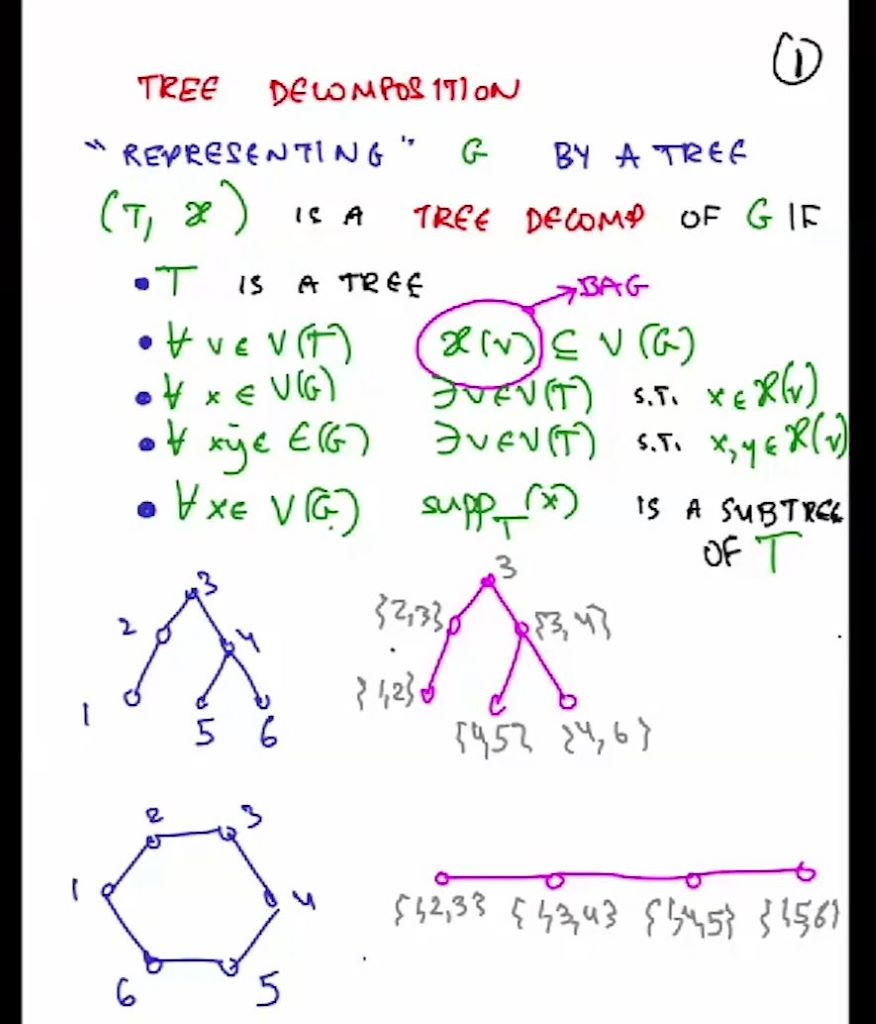 ①
TREE DECOMPOSITION
"REPRESENTING" G BY A TREE
(T, 𝒳) IS A TREE DECOMP OF G IF
• T IS A TREE
→BAG
• ∀ v ∈ V(T) 𝒳(v) ⊆ V(G)
• ∀ x ∈ V(G) ∃v∈V(T) S.T. x ∈ 𝒳(v)
• ∀ xy ∈ E(G) ∃v∈V(T) S.T. x,y ∈ 𝒳(v)
• ∀ x ∈ V(G) supp_T(x) IS A SUBTREE
OF T
3 3
2 4 {2,3} {3,4}
1 5 6 {1,2} {4,5} {4,6}
2 3
1 4 {1,2,3} {1,3,4} {1,4,5} {1,5,6}
6 5